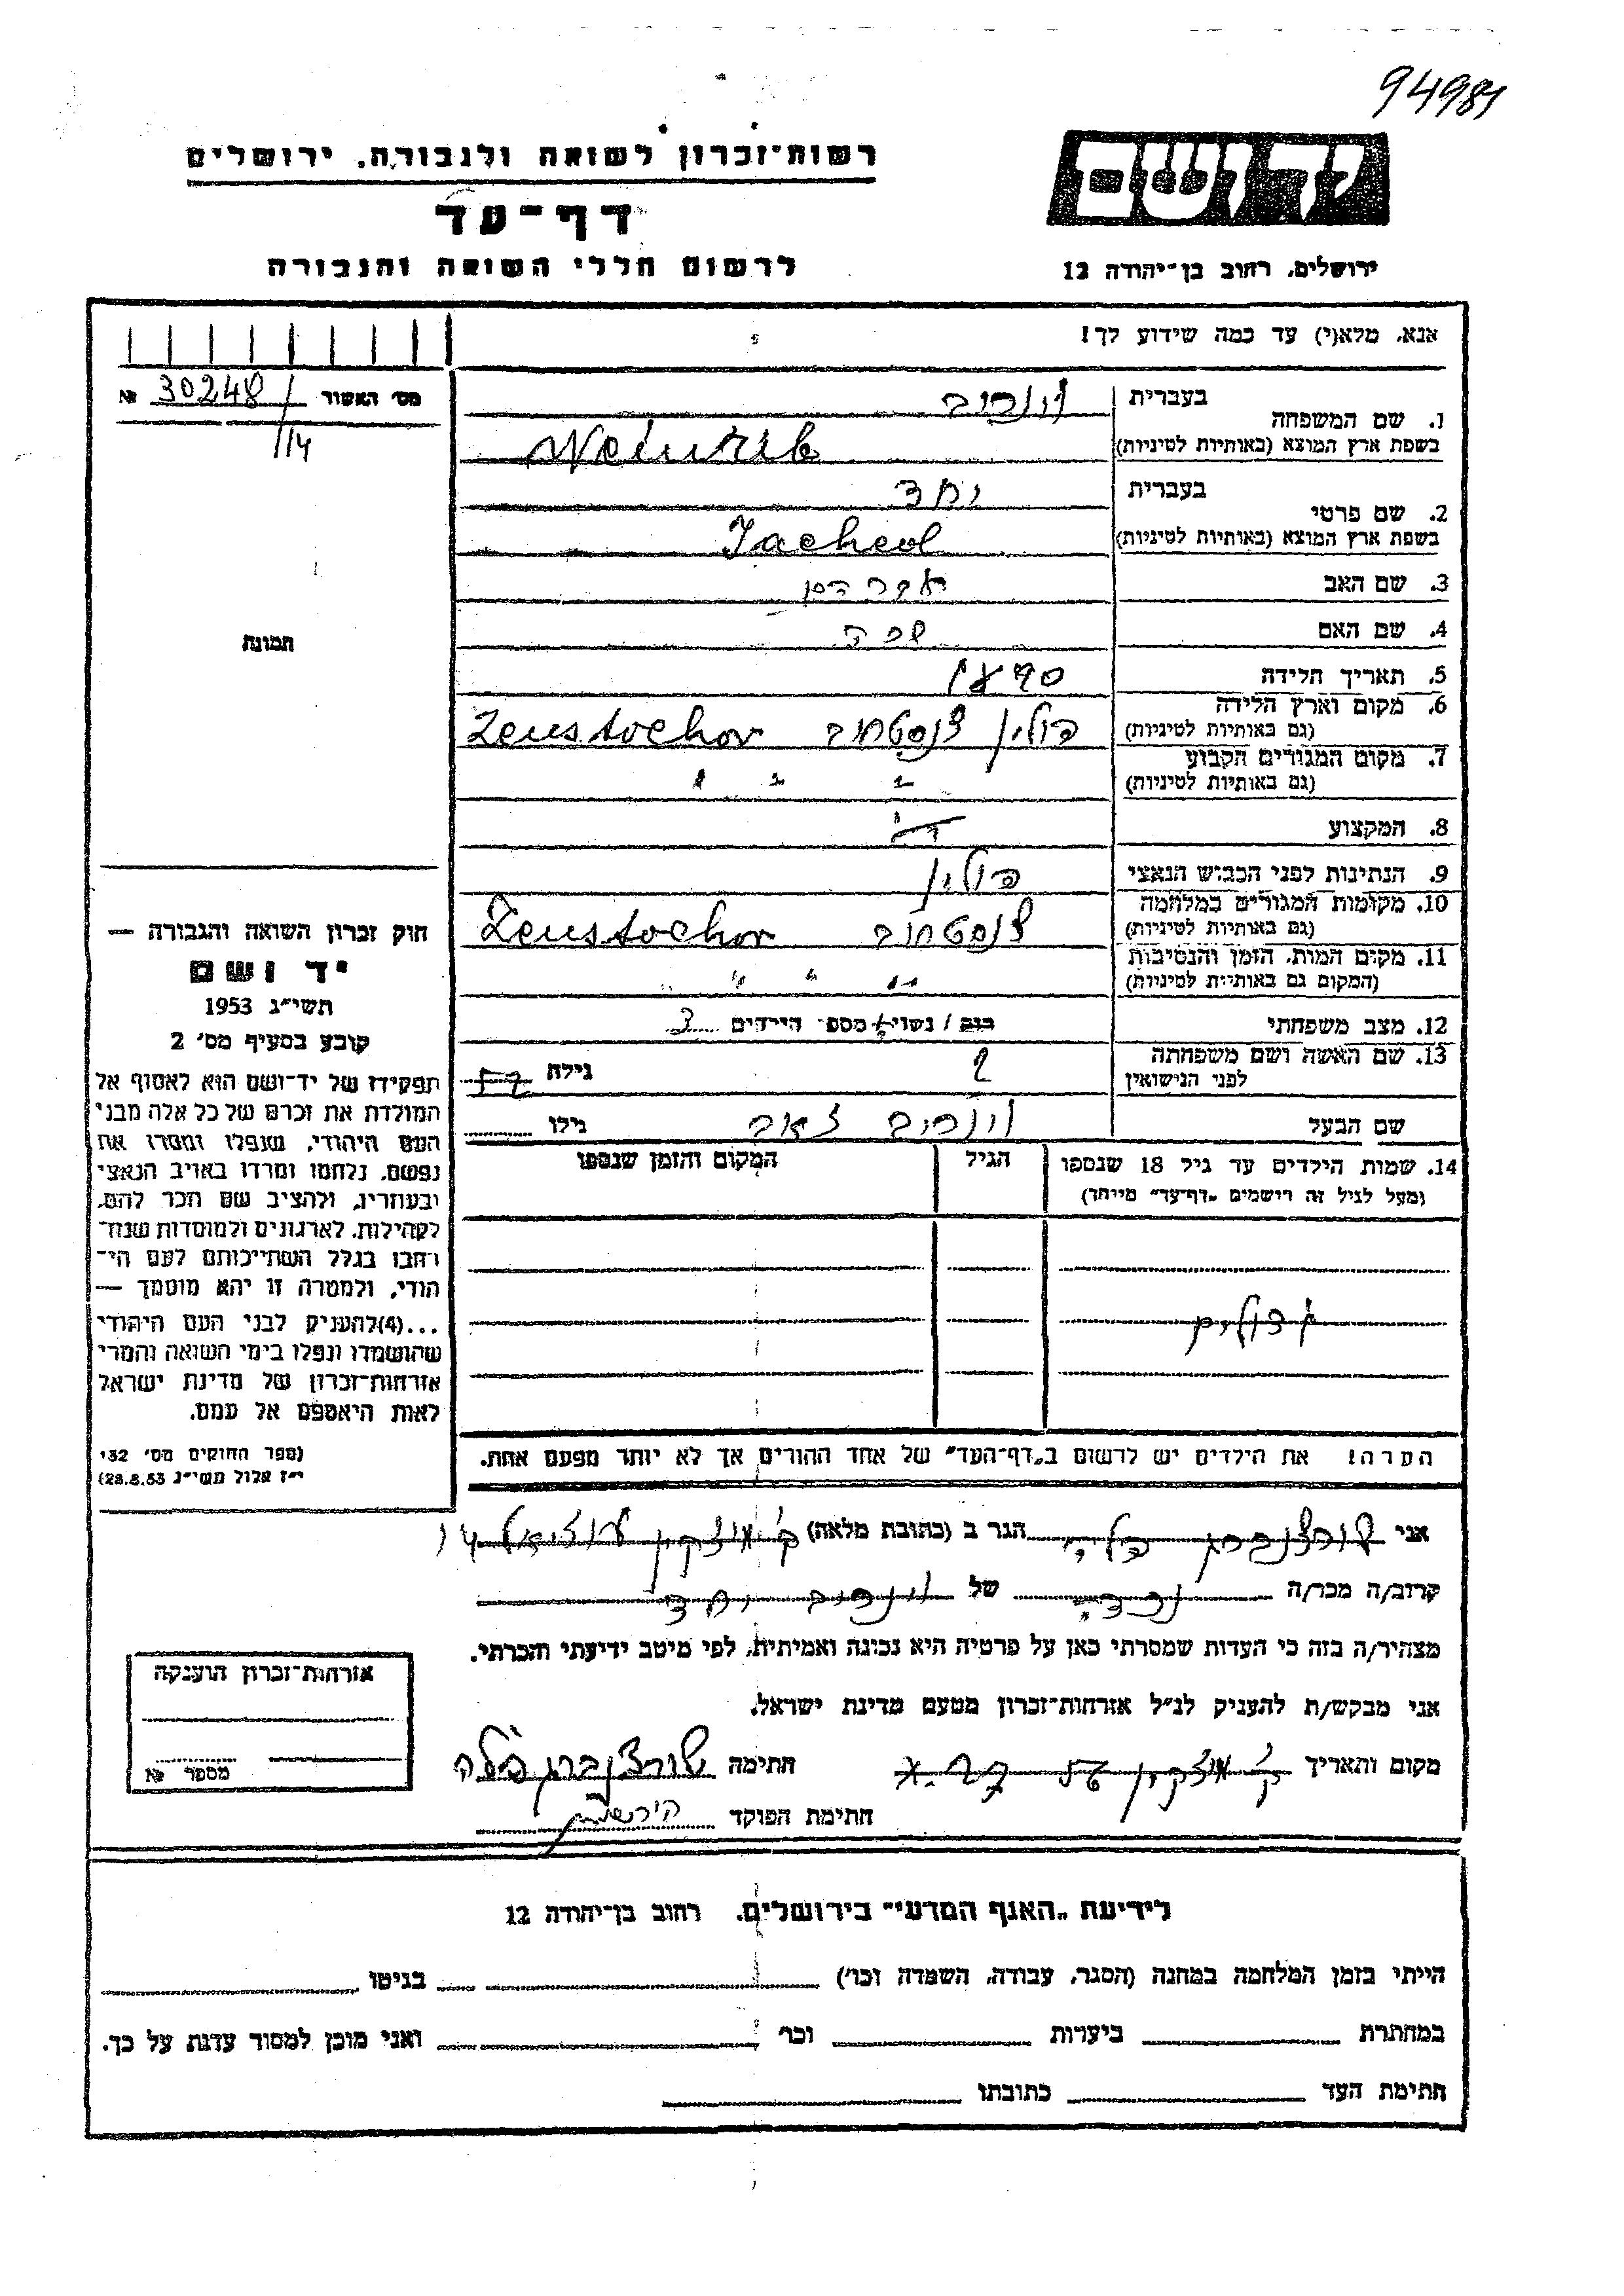 94984
רשות-זכרון לשואה ולגבורה, ירושלים
דף-עד
לרשום חללי השואה והגבורה
יד ושם
ירושלים, רחוב בן-יהודה 12
אנא, מלא(י) עד כמה שידוע לך!
מס' האשור 30248/ №
114
תמונה
1. שם המשפחה
בעברית וינריב
בשפת ארץ המוצא (באותיות לטיניות) Weinrib
2. שם פרטי
בעברית יחד
בשפת ארץ המוצא (באותיות לטיניות) Jached
3. שם האב
4. שם האם
5. תאריך הלידה 1890
6. מקום וארץ הלידה
(גם באותיות לטיניות) פולין צנסטחוב Zenstochov
7. מקום המגורים הקבוע
(גם באותיות לטיניות) " " "
8. המקצוע
9. הנתינות לפני הכבוש הנאצי פולין
10. מקומות המגורים במלחמה
(גם באותיות לטיניות) צנסטחוב Zenstochov
11. מקום המות, הזמן והנסיבות
(המקום גם באותיות לטיניות) " " " "
12. מצב משפחתי רוק / נשוי+ מספר הילדים 3
13. שם האשה ושם משפחתה
לפני הנישואין גילה
שם הבעל וינריב זאב גילו
14. שמות הילדים עד גיל 18 שנספו
(מעל לגיל זה רושמים "דף-עד" מיוחד)
הגיל
המקום והזמן שנספו
גדולים
הערה! את הילדים יש לרשום ב"דף-העד" של אחד ההורים אך לא יותר מפעם אחת.
חוק זכרון השואה והגבורה —
יד ושם
תשי"ג 1953
קובע בסעיף מס' 2
תפקידו של יד-ושם הוא לאסוף אל
המולדת את זכרם של כל אלה מבני
העם היהודי, שנפלו ומסרו את
נפשם, נלחמו ומרדו באויב הנאצי
ובעוזריו, ולהציב שם וזכר להם,
לקהילות, לארגונים ולמוסדות שנח-
רבו בגלל השתייכותם לעם הי-
הודי, ולמטרה זו יהא מוסמך —
...(4)להעניק לבני העם היהודי
שהושמדו ונפלו בימי השואה והמרי
אזרחות-זכרון של מדינת ישראל
לאות היאספם אל עמם.
(ספר החוקים מס' 132
י"ז אלול תשי"ג 28.8.53)
אני שורצנברג בלה הגר ב (כתובת מלאה) ק' מוצקין עוזיאל 14
קרוב/ה מכר/ה נכדה של וינריב יחד
מצהיר/ה בזה כי העדות שמסרתי כאן על פרטיה היא נכונה ואמיתית, לפי מיטב ידיעתי והכרתי.
אני מבקש/ת להעניק לנ"ל אזרחות-זכרון מטעם מדינת ישראל.
מקום ותאריך ק' מוצקין חתימה שורצנברג בלה
חתימת הפוקד
אזרחות-זכרון הוענקה
מספר №
לידיעת "האגף המדעי" בירושלים, רחוב בן-יהודה 12
הייתי בזמן המלחמה במחנה (הסגר, עבודה, השמדה וכו') בגיטו
במחתרת ביערות וכו' ואני מוכן למסור עדות על כך.
חתימת העד כתובתו